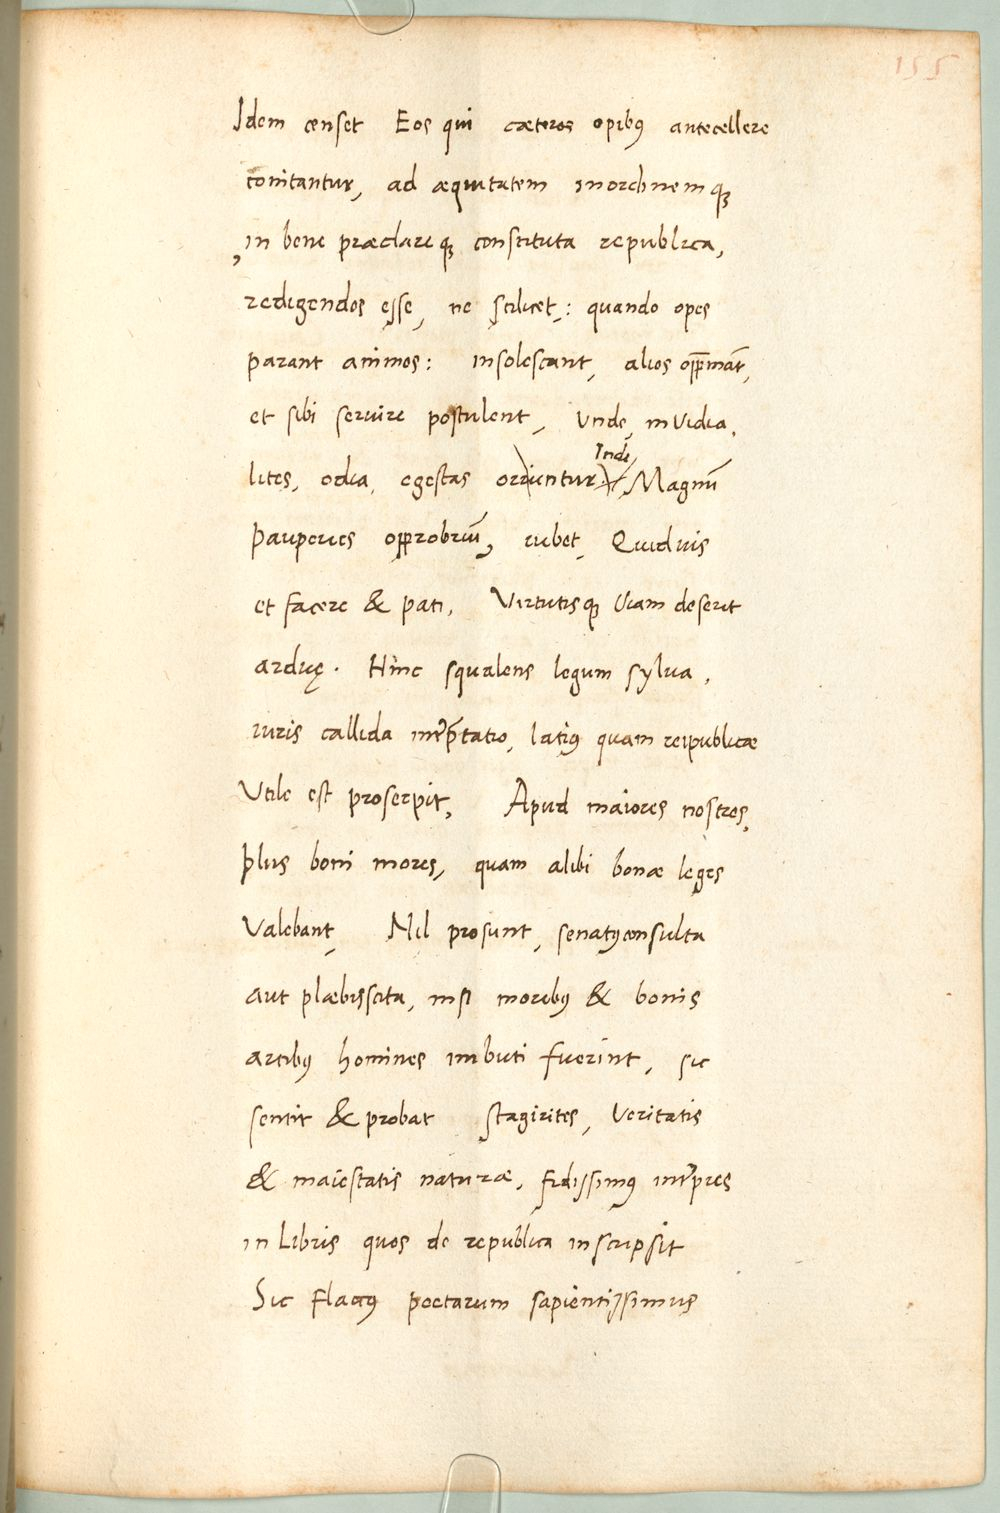 155
Idem censet Eos qui cæteros opibꝰ antecellere
conitantur, ad æquitatem inordinemqꝫ
in bene præclareqꝫ constituta republica,
redigendos esse, ne scilicet: quando opes
parant animos: insolescant, alios opp̄māt,
et sibi seruire postulent, Unde, inuidia,
lites, odia, egestas oriuntur, Inde, Magnū
pauperies opprobriū, iubet, Quiduis
et facere & pati, Virtutisqꝫ Viam deserit
arduę. Hinc squalens legum sylua,
iuris callida interp̄tatio, latiꝰ quam reipublicæ
Utile est proserpit, Apud maiores nostros,
plus boni mores, quam alibi bonæ leges
Valebant, Nil prosunt, senatꝰconsulta
aut plæbisscita, nisi moribꝰ & bonis
artibꝰ homines imbuti fuerint, sic
sentit & probat stagirites, Veritatis
& maiestatis naturæ, fidissimꝰ interpres
in Libris quos de republica inscripsit
Sic flaccꝰ poetarum sapientissimus